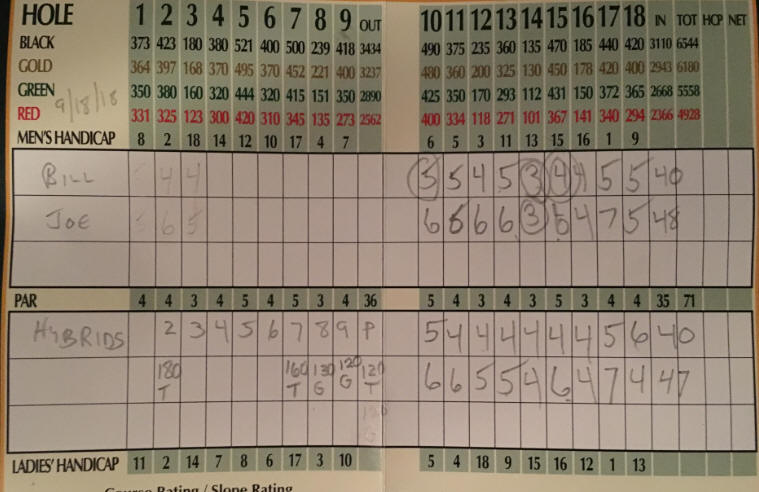 HOLE 1 2 3 4 5 6 7 8 9 OUT 10 11 12 13 14 15 16 17 18 IN TOT HCP NET
BLACK 373 423 180 380 521 400 500 239 418 3434 490 375 235 360 135 470 185 440 420 3110 6544
GOLD 364 397 168 370 495 370 452 221 400 3237 480 360 200 325 130 450 178 420 400 2943 6180
GREEN 350 380 160 320 444 320 415 151 350 2890 425 350 170 293 112 431 150 372 365 2668 5558
9/18/18
RED 331 325 123 300 420 310 345 135 273 2562 400 334 118 271 101 367 141 340 294 2366 4928
MEN'S HANDICAP 8 2 18 14 12 10 17 4 7 6 5 3 11 13 15 16 1 9
BILL 5 4 4 5 5 4 5 3 4 4 5 5 40
JOE 5 6 5 6 6 6 6 3 5 4 7 5 48
PAR 4 4 3 4 5 4 5 3 4 36 5 4 3 4 3 5 3 4 4 35 71
HYBRIDS 2 3 4 5 6 7 8 9 P 5 4 4 4 4 4 4 5 6 40
180 T 160 T 130 G 120 G 120 T 6 6 5 5 4 6 4 7 4 47
G
LADIES' HANDICAP 11 2 14 7 8 6 17 3 10 5 4 18 9 15 16 12 1 13
Course Rating / Slope Rating